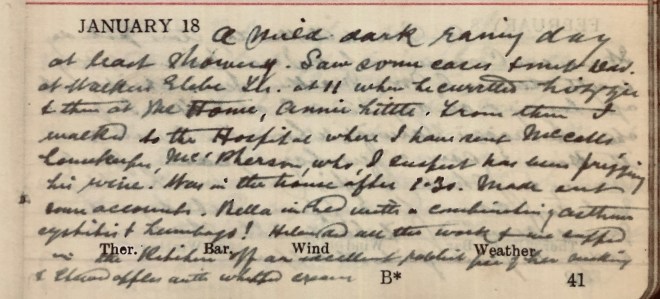 JANUARY 18 A mild dark rainy day
at least showery. Saw some cases & met
at Walkers Glebe St. at 11 when he curetted
& then at the Home, Annie Little. From there I
walked to the Hospital where I have sent McCalls
housekeeper, McPherson, who, I suspect has been prigging
his wine! Was in the house after 2.30. Made out
some accounts. Bella in bed with a combination asthma
cystitis & lumbago! Helen did all the work & we supped
Ther. Bar. Wind Weather
in the Kitchen off an excellent rabbit pie of her making
& stewed apples with whipped cream
B* 41